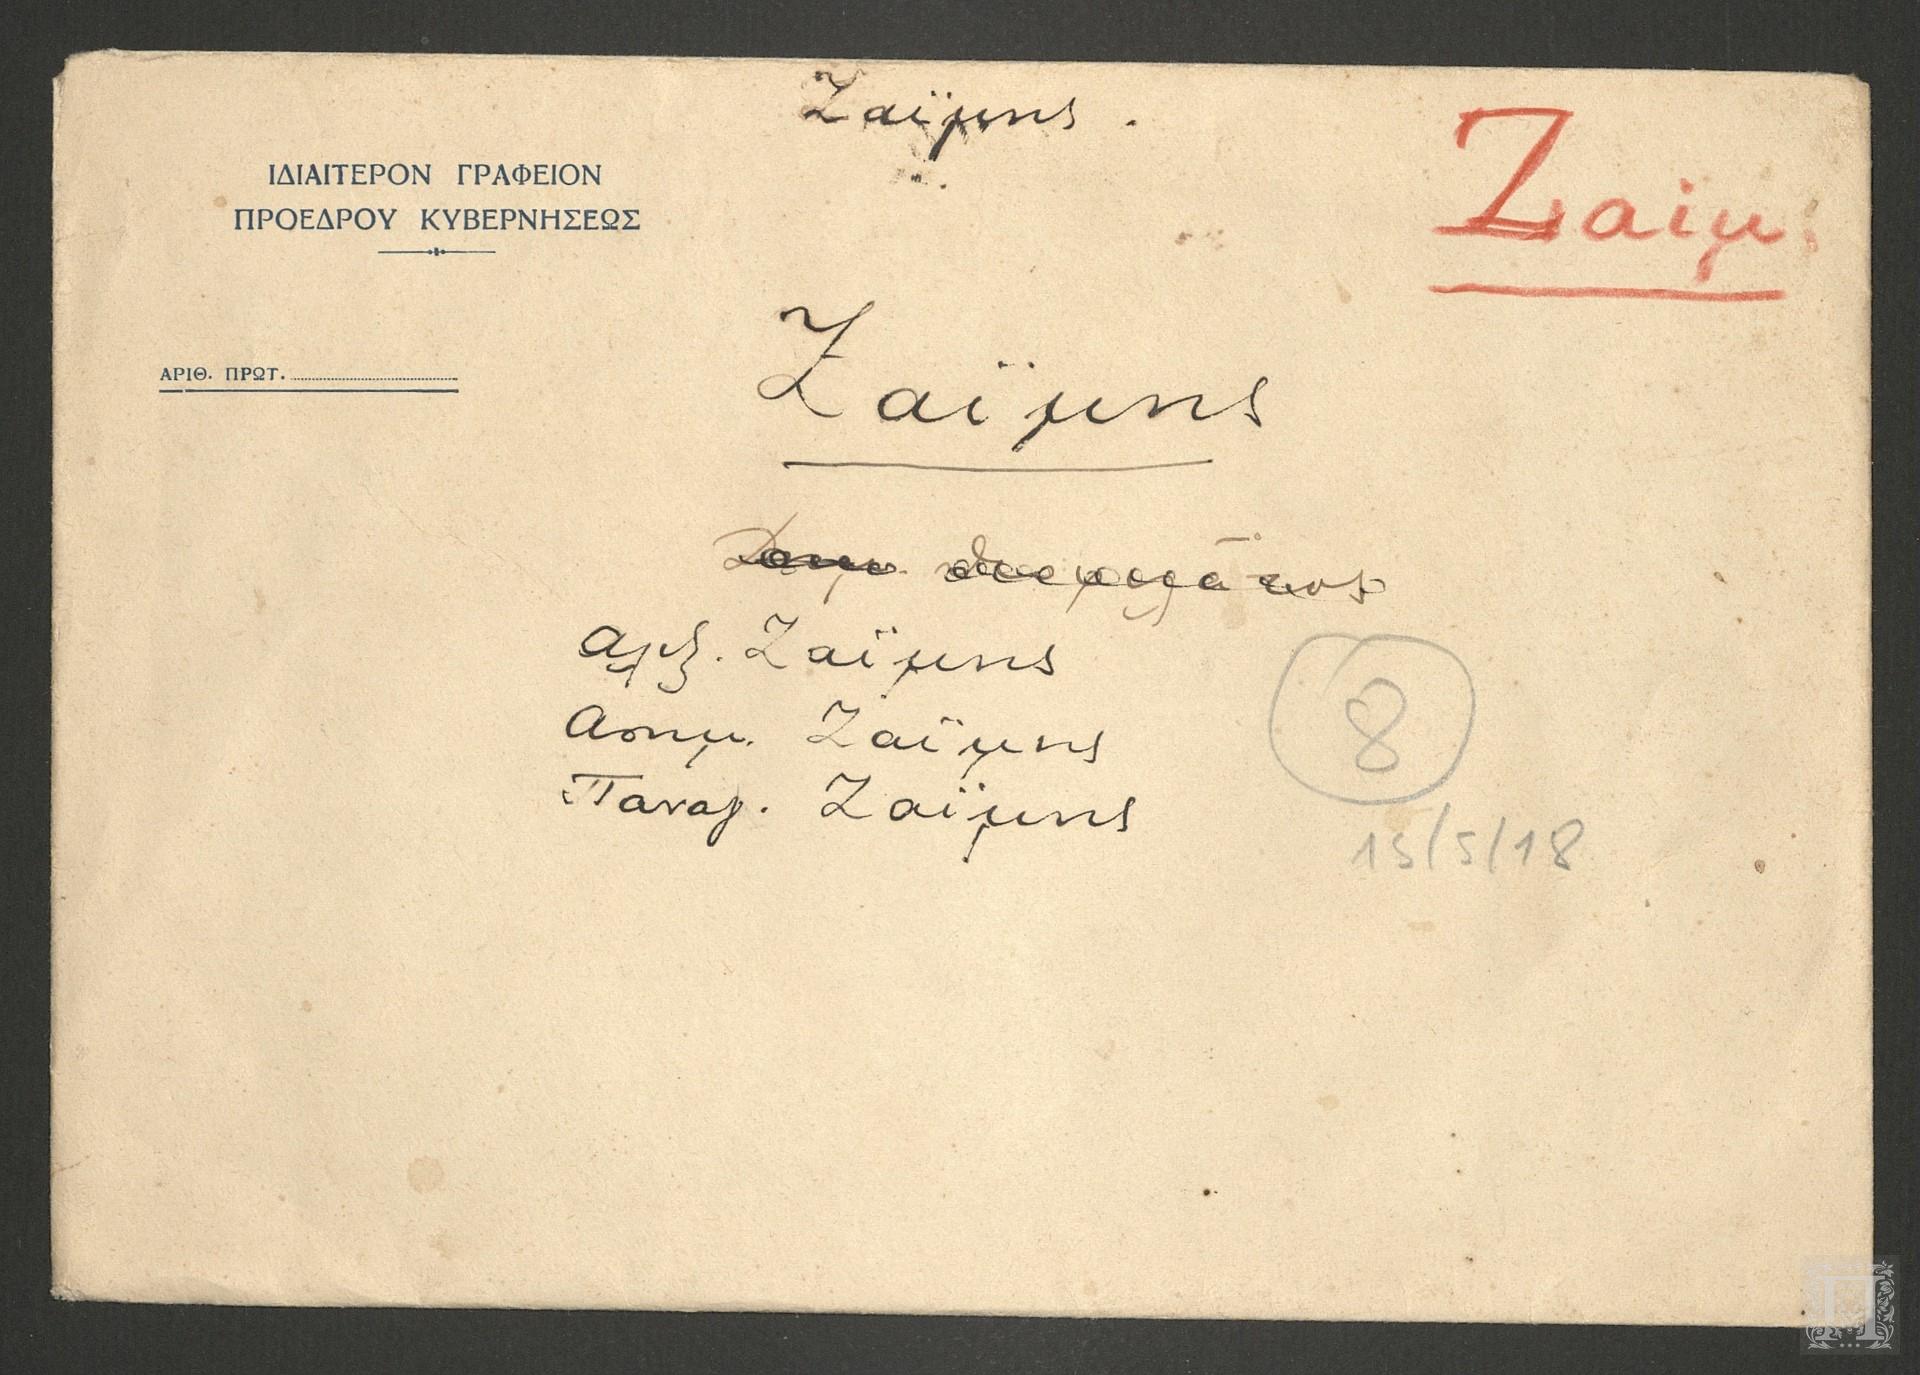 Ζαΐμης.
ΙΔΙΑΙΤΕΡΟΝ ΓΡΑΦΕΙΟΝ
ΠΡΟΕΔΡΟΥ ΚΥΒΕΡΝΗΣΕΩΣ
Ζαϊμ.
ΑΡΙΘ. ΠΡΩΤ.
Ζαΐμης
Ζαΐμης
Ασημ. Ζαΐμης
Παναγ. Ζαΐμης
8
15/5/18